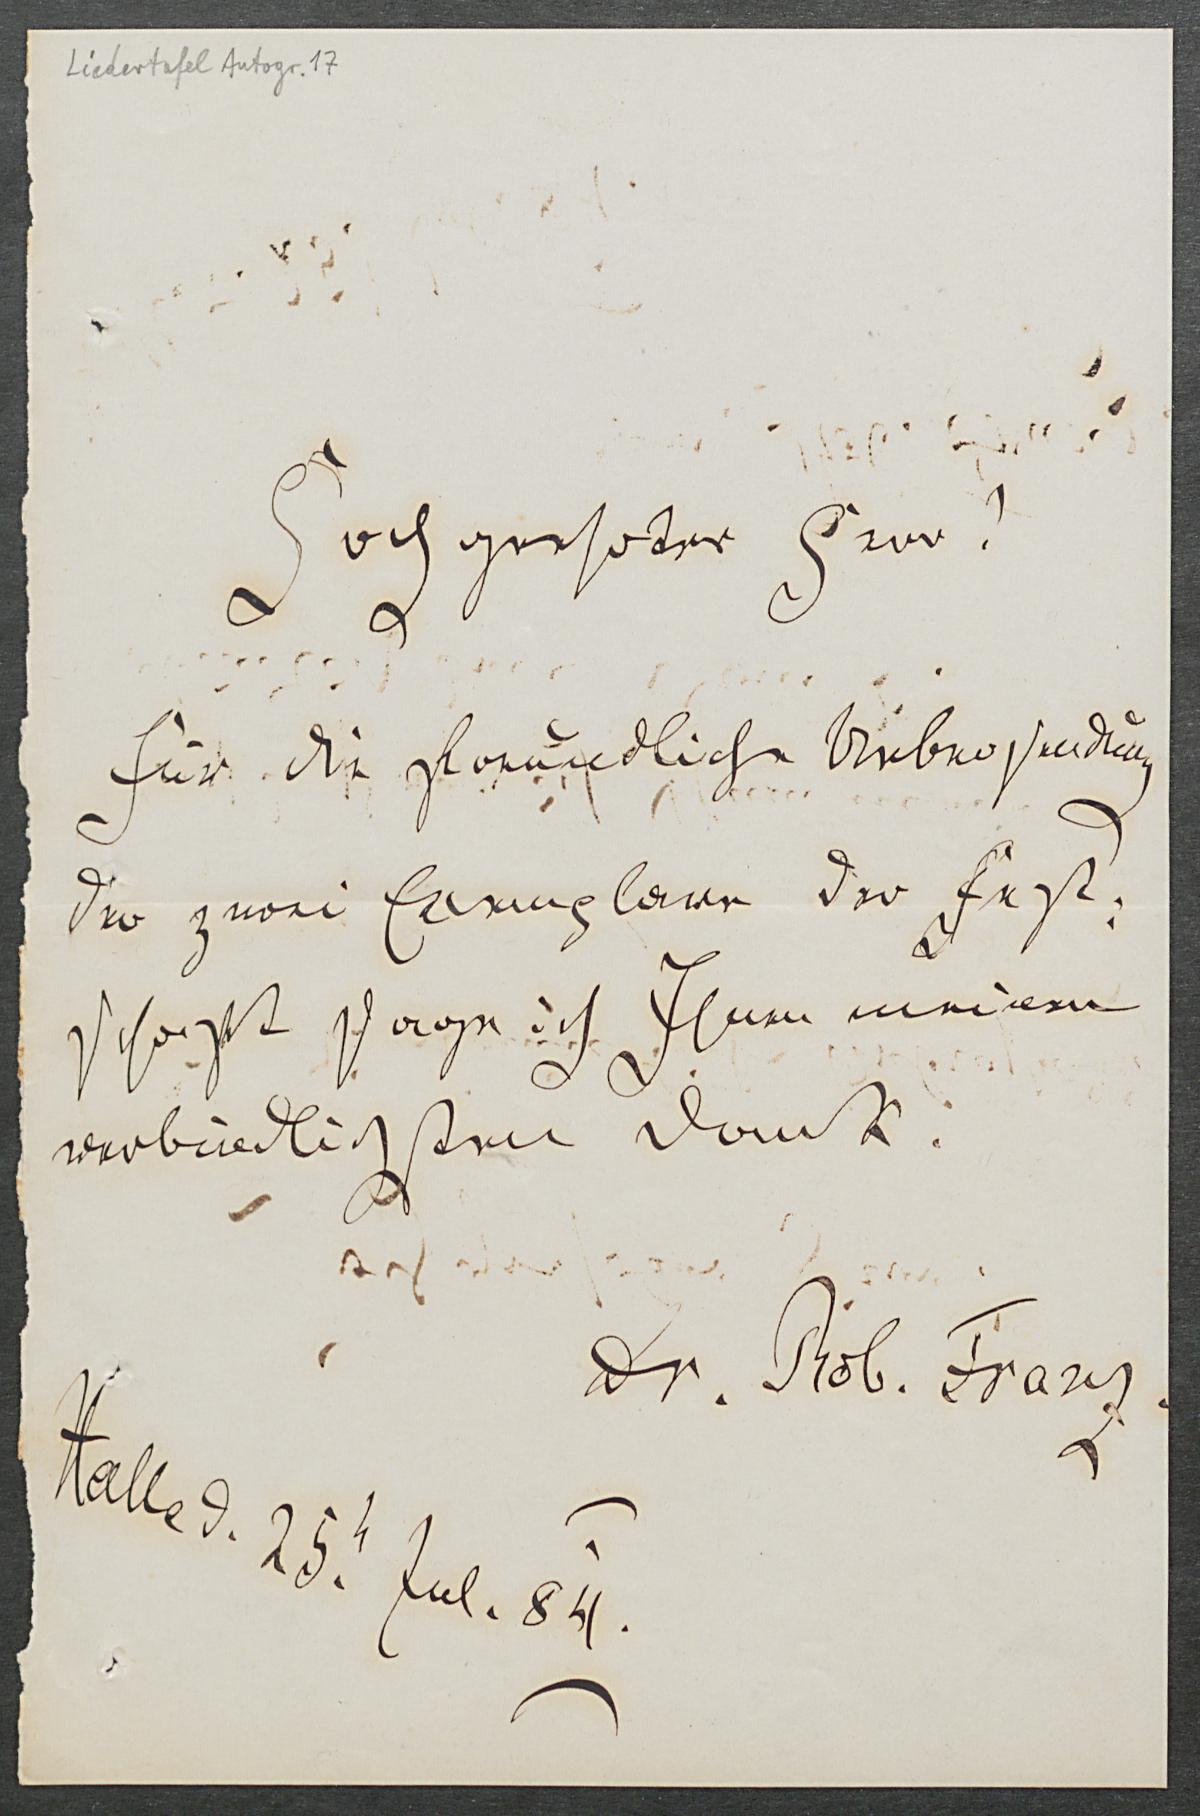 Liedertafel Autogr. 17
Hochgeehrter Herr!
Für die freundliche Uebersendung
der zwei Exemplare der Fest-
schrift sage ich Ihnen meinen
verbindlichsten Dank.
Dr. Rob. Franz.
Halle d. 25t Jul. 84.